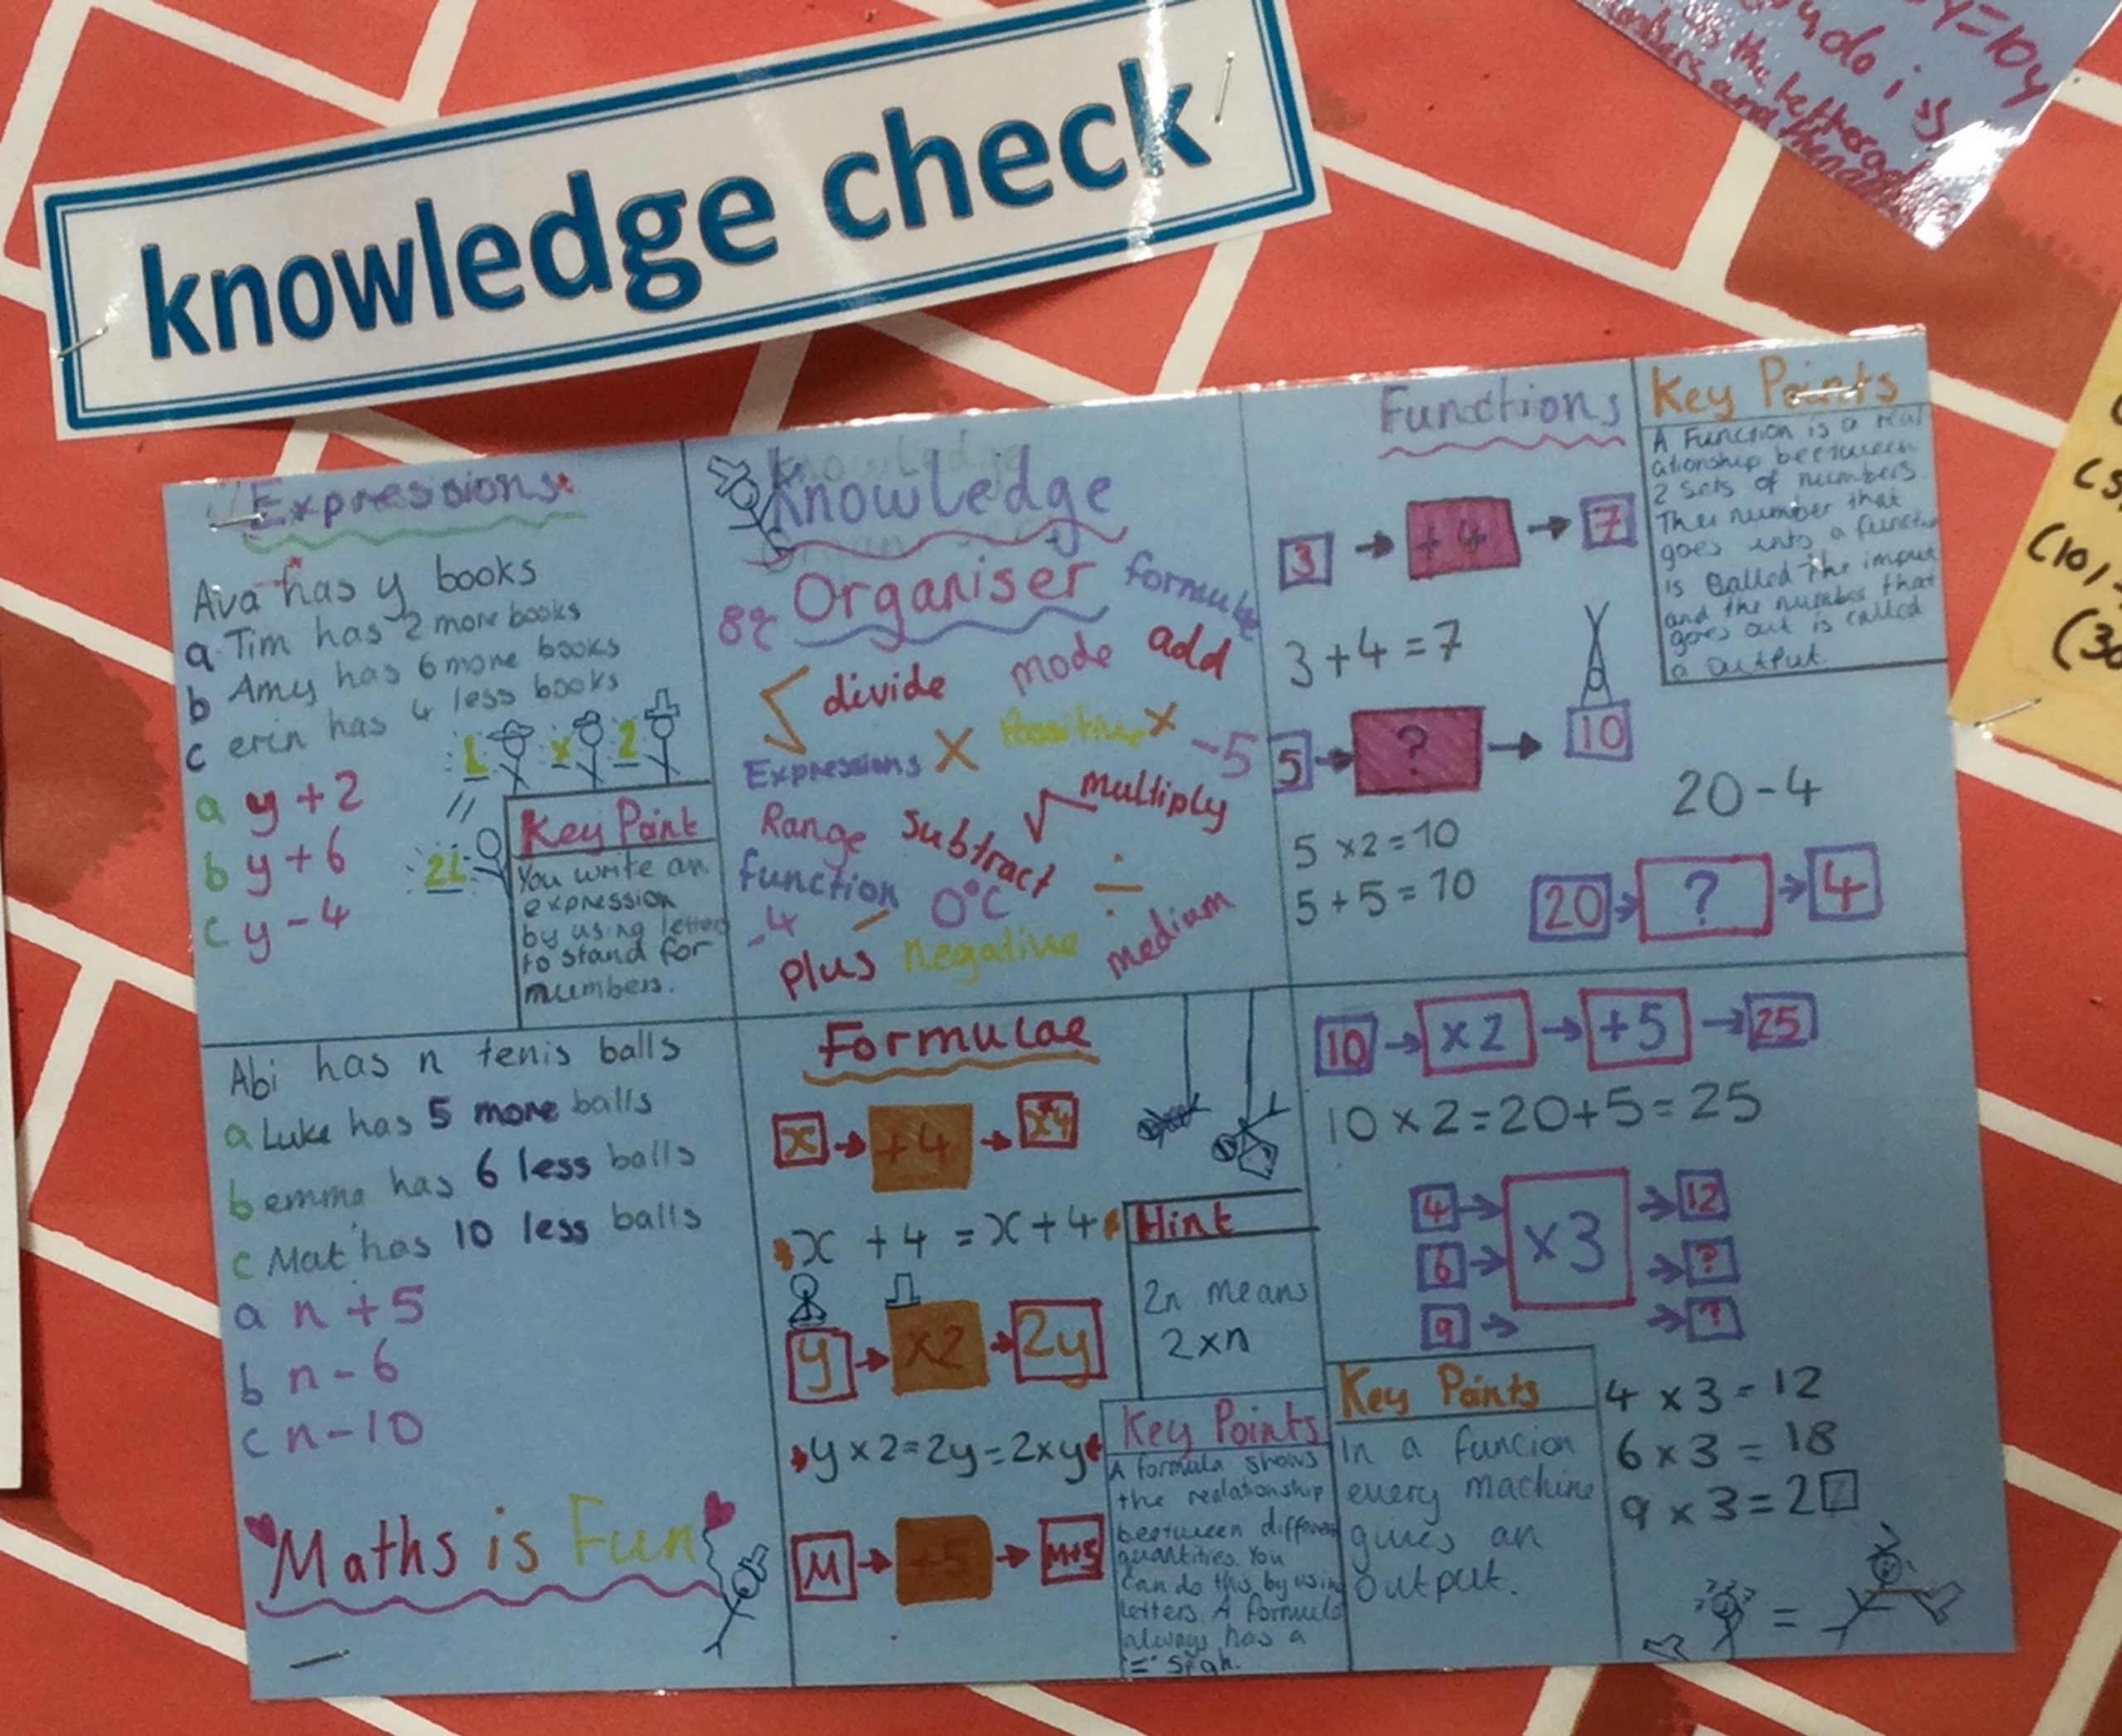 knowledge check
y=10y
do is
the letters
and then
Expressions
Ava has y books
a Tim has 2 more books
b Amy has 6 more books
c erin has 4 less books
a y + 2
b y + 6
c y - 4
Key Point
You write an
expression
by using letters
to stand for
numbers.
Abi has n tenis balls
a Luke has 5 more balls
b emma has 6 less balls
c Mat has 10 less balls
a n + 5
b n - 6
c n - 10
Maths is Fun
Knowledge
Organiser
formula
divide
mode
add
Expressions
X
Positive
X
-5
Range
subtract
√
multiply
function
0°C
÷
-4
plus
negative
mediam
Formulae
x → +4 → x4
x + 4 = x + 4
y → x2 → 2y
y x 2 = 2y = 2xy
M → +5 → M+5
Hint
2n means
2xn
Key Points
A formula shows
the reelationship
beetween different
quantities. You
can do this by usin
letters. A formula
always has a
"=" sign.
Functions
3 → +4 → 7
3 + 4 = 7
5 → ? → 10
5 x 2 = 10
5 + 5 = 10
20 - 4
20 → ? → 4
Key Points
A Function is a real
ationship beetween
2 sets of numbers.
The number that
goes into a functi
is called the imput
and the number that
goes out is called
a output.
10 → x2 → +5 → 25
10 x 2 = 20 + 5 = 25
4 → x3 → 12
6 → → ?
9 → → ?
Key Points
In a funcion
every machine
gives an
output.
4 x 3 = 12
6 x 3 = 18
9 x 3 = 2□
=
(10,
(30